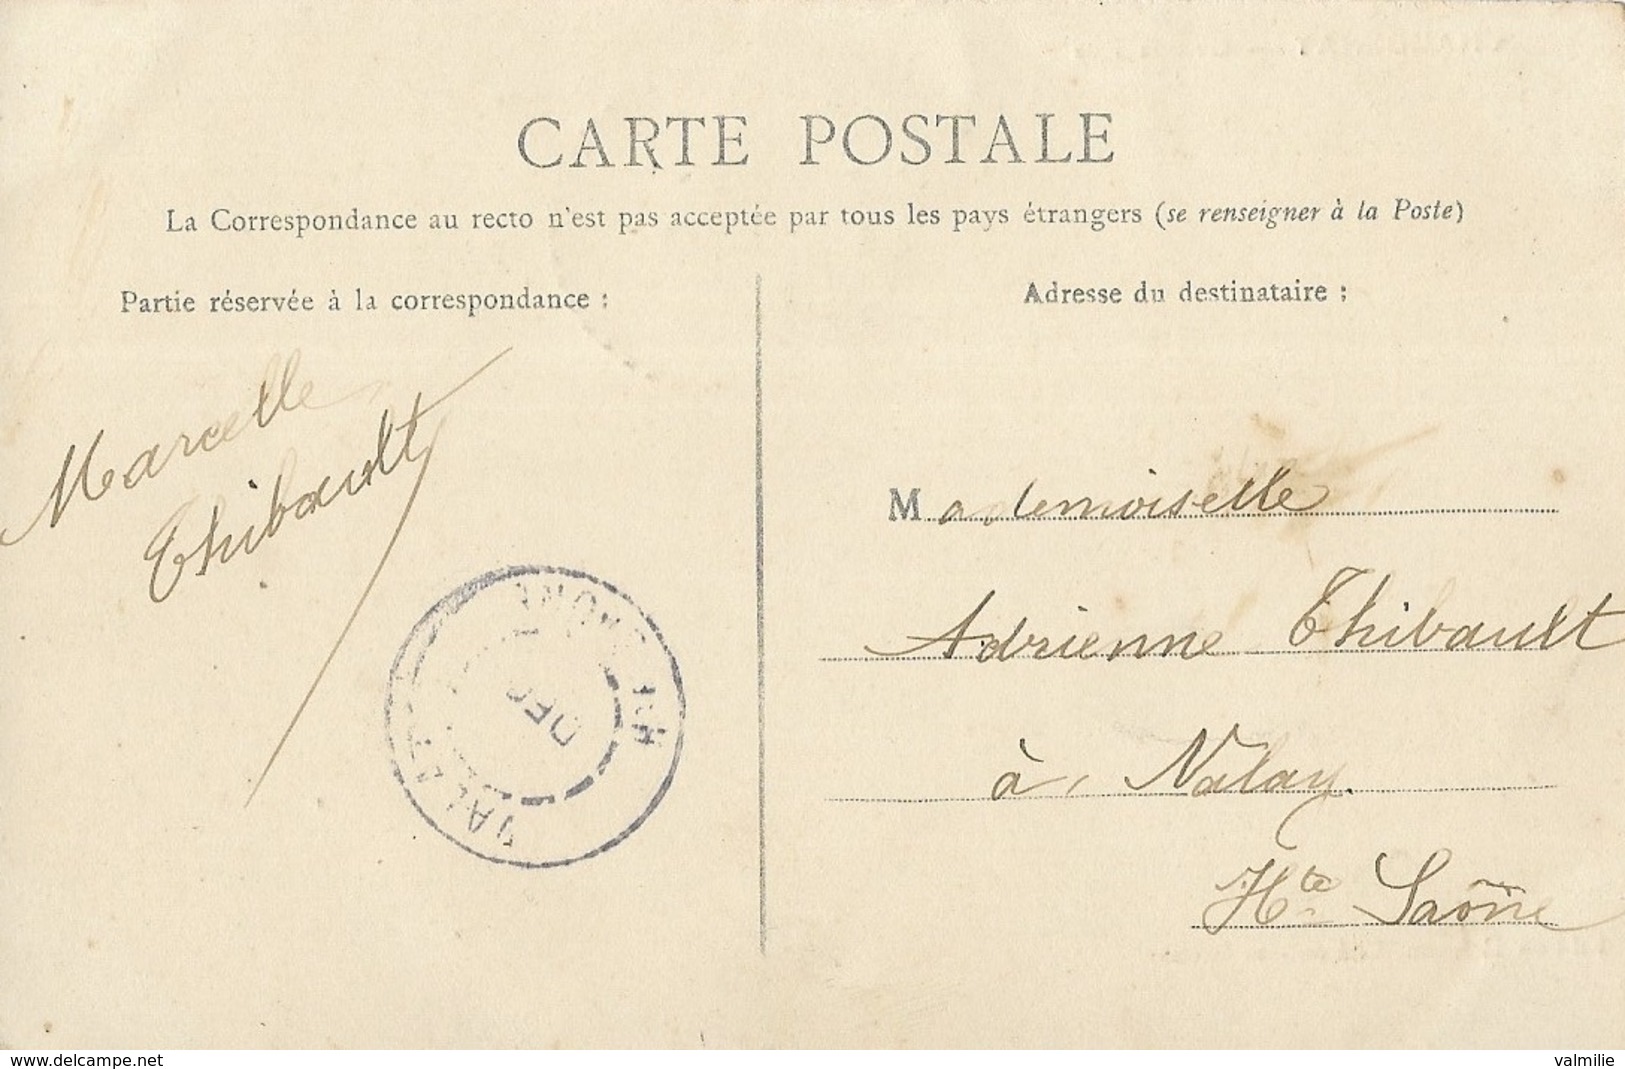 CARTE POSTALE
La Correspondance au recto n'est pas acceptée par tous les pays étrangers (se renseigner à la Poste)
Partie réservée à la correspondance :
Adresse du destinataire :
Marcelle
Thibault
Mademoiselle
Adrienne Thibault
à Valay.
Hte Saône
DEC
www.delcampe.net
valmilie